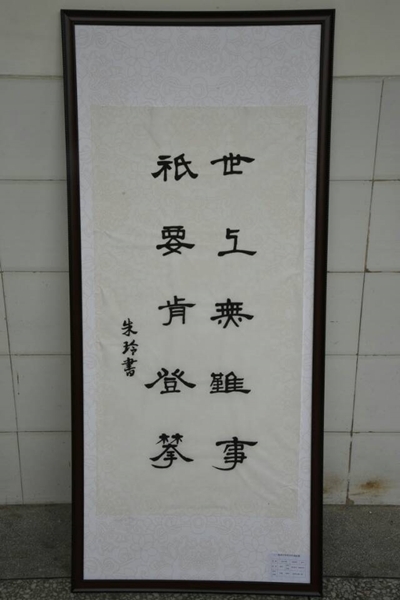 世上無難事
祇要肯登攀
朱玲書